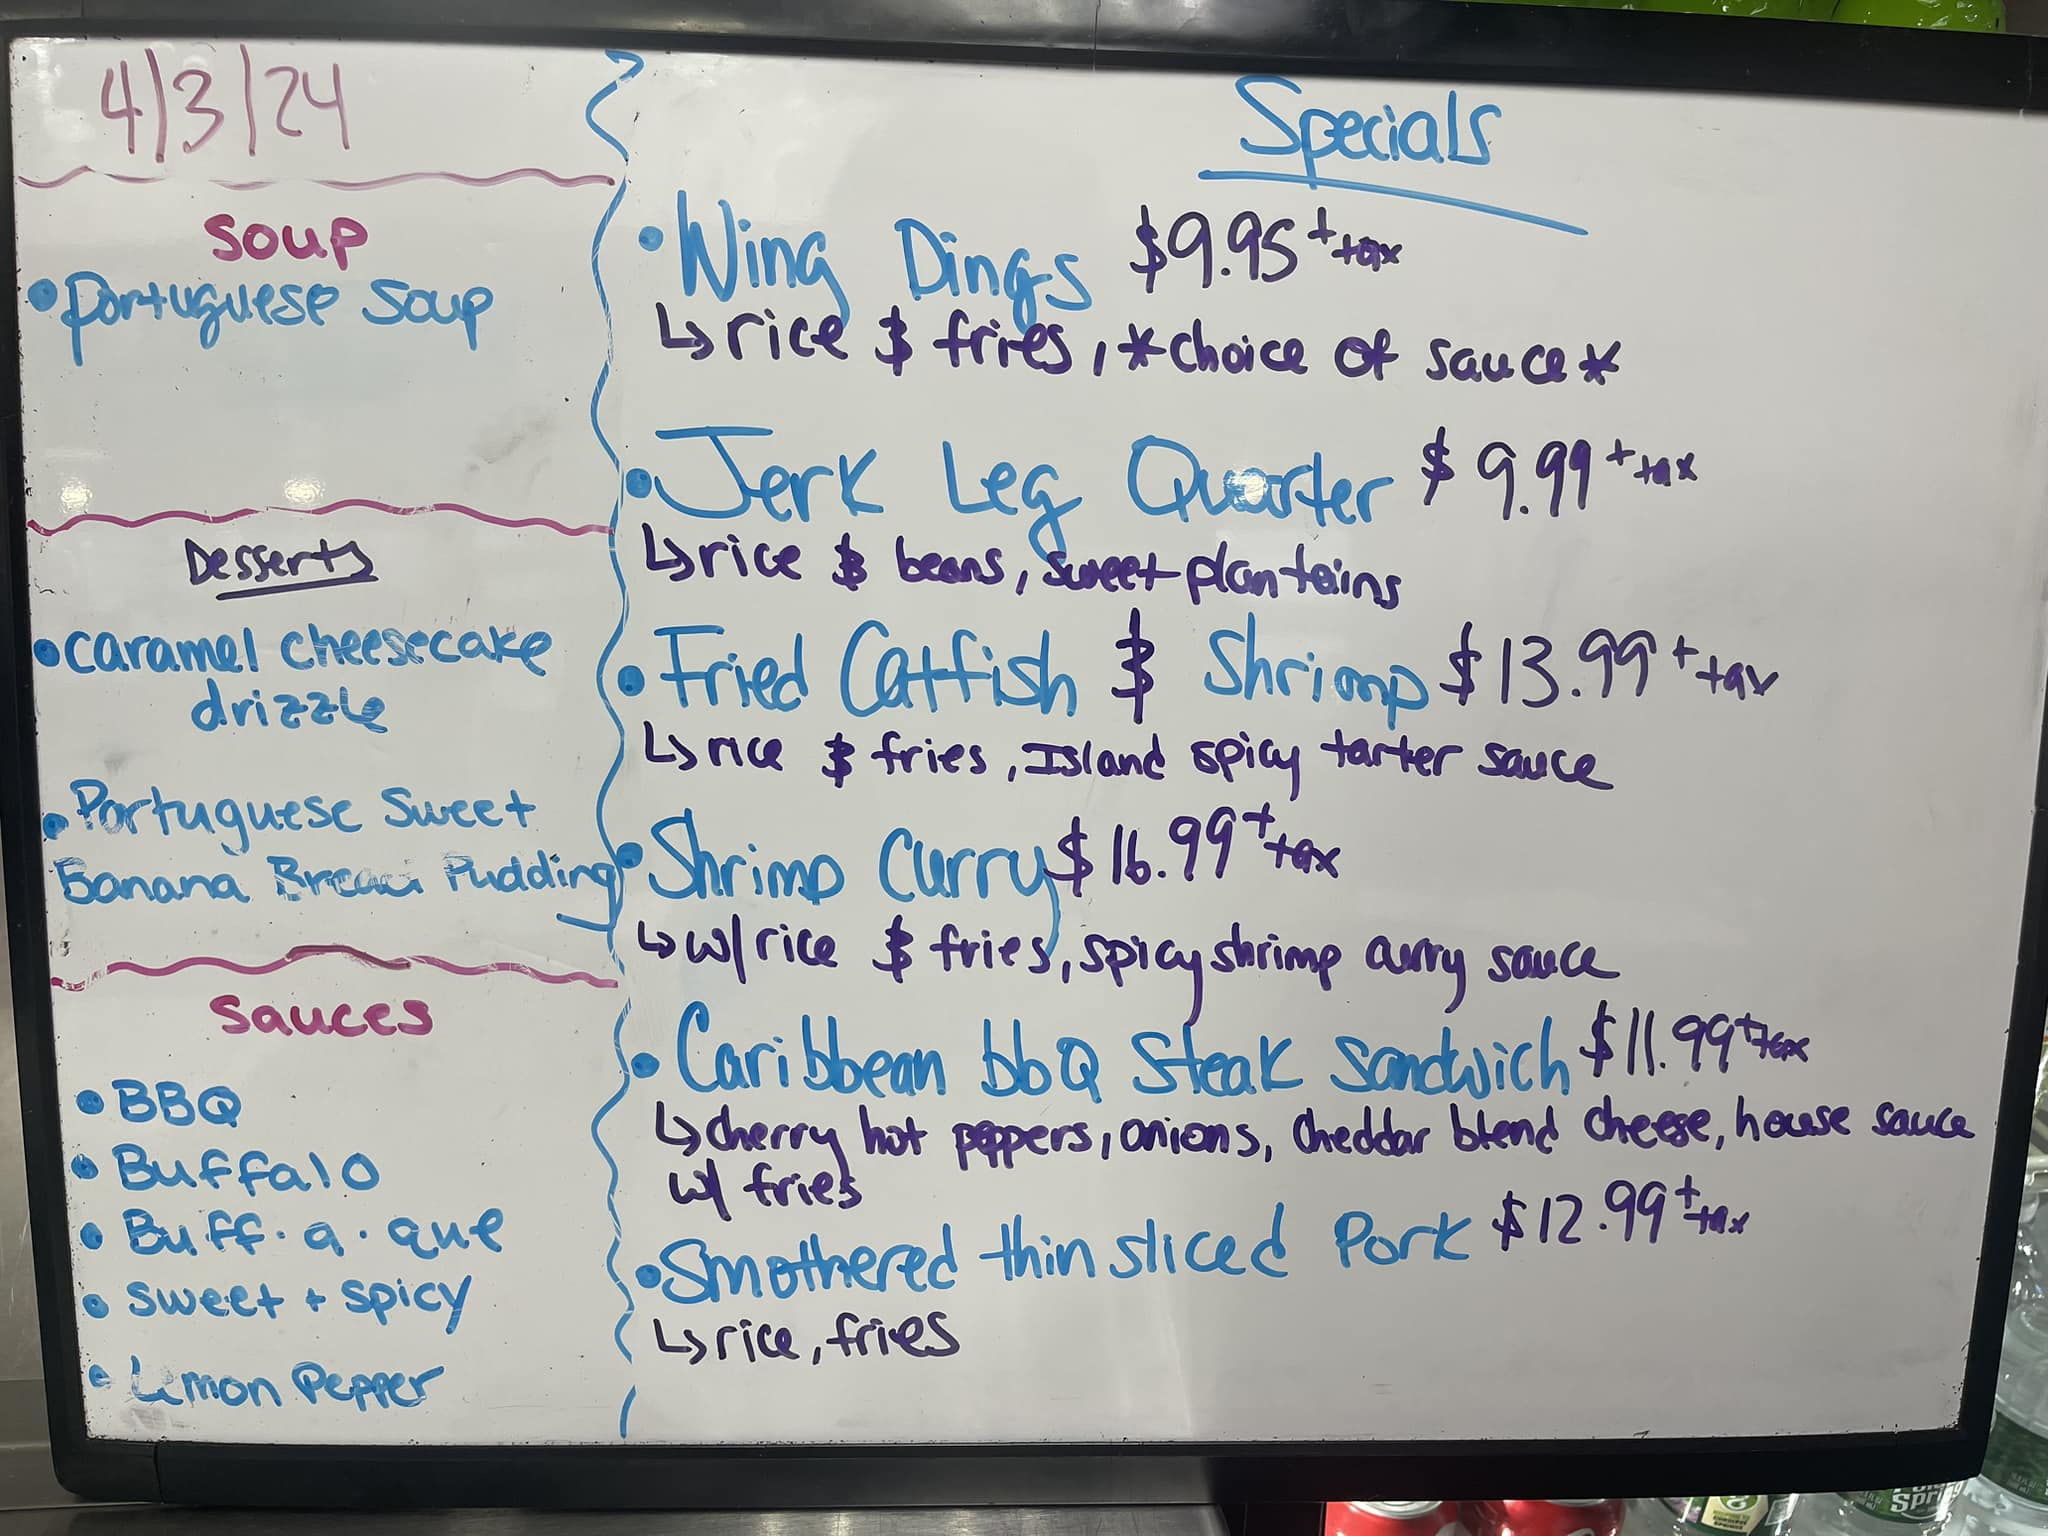 4/3/24
Soup
• Portuguese Soup
Desserts
• Caramel cheesecake
drizzle
• Portuguese Sweet
Banana Bread Pudding
Sauces
• BBQ
• Buffalo
• Buff·a·que
• Sweet + Spicy
• Lemon Pepper
Specials
• Wing Dings $9.95 + tax
↳ rice & fries, *choice of sauce*
• Jerk Leg Quarter $9.99 + tax
↳ rice & beans, sweet plantains
• Fried Catfish & Shrimp $13.99 + tax
↳ rice & fries, Island spicy tarter sauce
• Shrimp Curry $16.99 + tax
↳ w/ rice & fries, spicy shrimp curry sauce
• Caribbean bbQ Steak Sandwich $11.99 + tax
↳ cherry hot peppers, onions, cheddar blend cheese, house sauce
w/ fries
• Smothered thin sliced Pork $12.99 + tax
↳ rice, fries
Spring